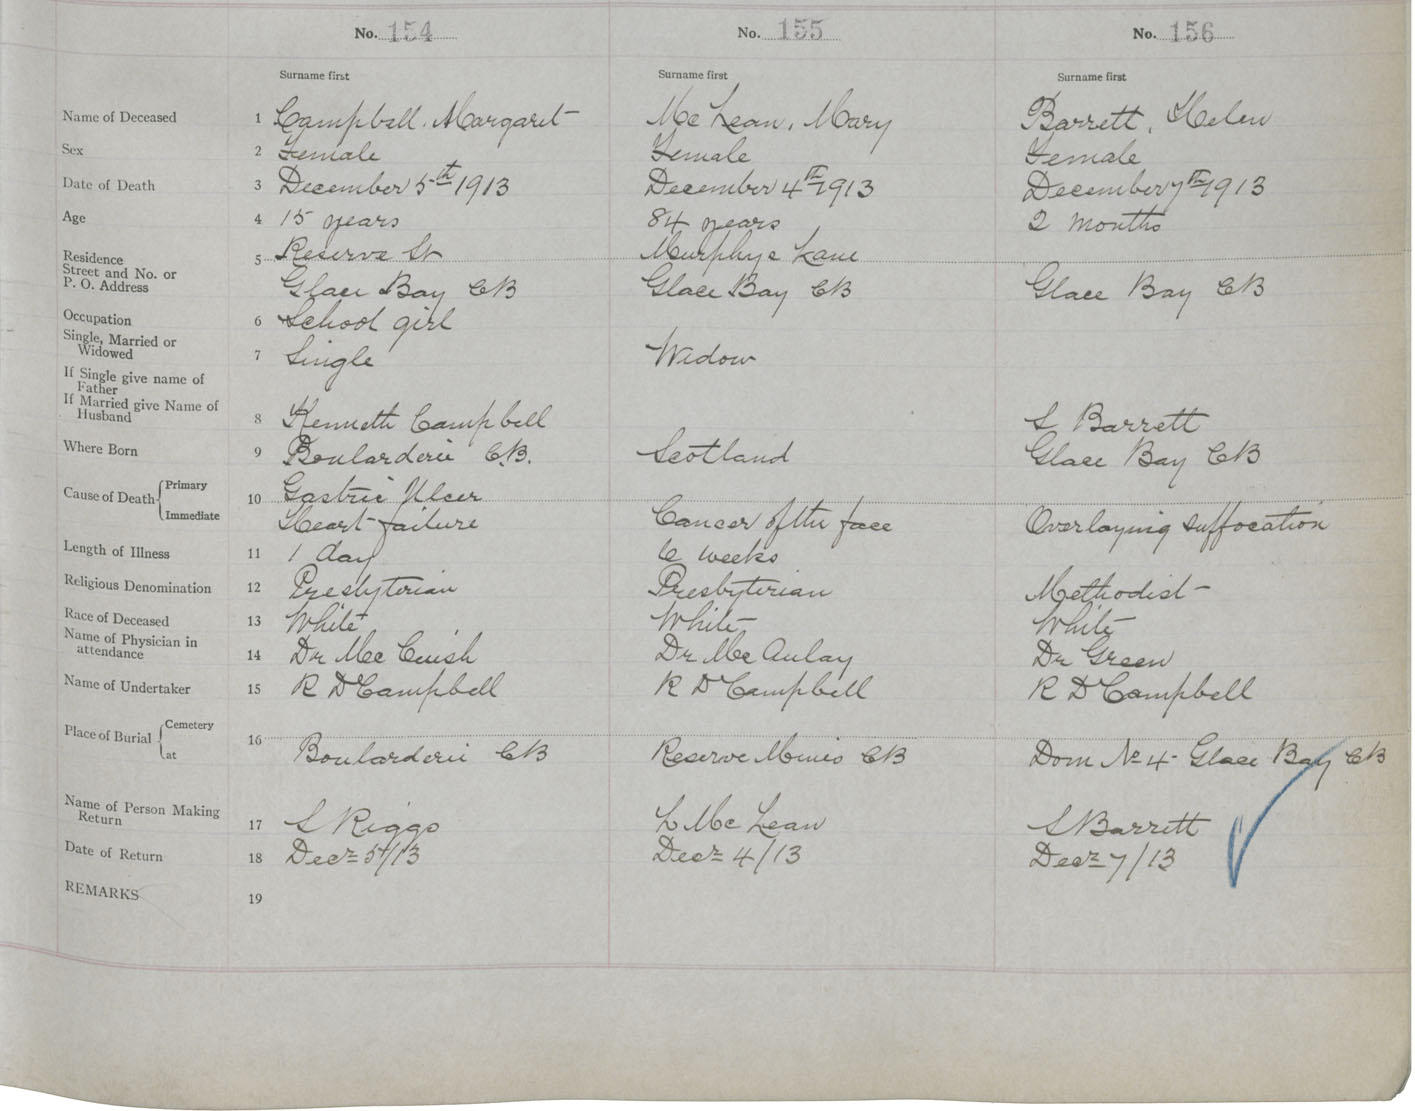 No. 154 No. 155 No. 156
Surname first Surname first Surname first
Name of Deceased 1 Campbell. Margaret McLean, Mary Barrett, Helen
Sex 2 Female Female Female
Date of Death 3 December 5th 1913 December 4th 1913 December 7th 1913
Age 4 15 years 84 years 2 months
Residence 5 Reserve St Murphys Lane
Street and No. or
P. O. Address Glace Bay CB Glace Bay CB Glace Bay CB
Occupation 6 School girl
Single, Married or
Widowed 7 Single Widow
If Single give name of
Father
If Married give Name of
Husband 8 Kenneth Campbell S Barrett
Where Born 9 Boularderie C.B. Scotland Glace Bay CB
Cause of Death Primary 10 Gastric Ulcer
Immediate Heart failure Cancer of the face Overlaying suffocation
Length of Illness 11 1 day 6 weeks
Religious Denomination 12 Presbyterian Presbyterian Methodist
Race of Deceased 13 White White White
Name of Physician in
attendance 14 Dr McCuish Dr McAulay Dr Green
Name of Undertaker 15 R D Campbell R D Campbell R D Campbell
Place of Burial Cemetery 16
at Boularderie CB Reserve Mines CB Dom No 4 Glace Bay CB
Name of Person Making
Return 17 S Riggs L McLean S Barrett
Date of Return 18 Decr 5/13 Decr 4/13 Decr 7/13
REMARKS 19